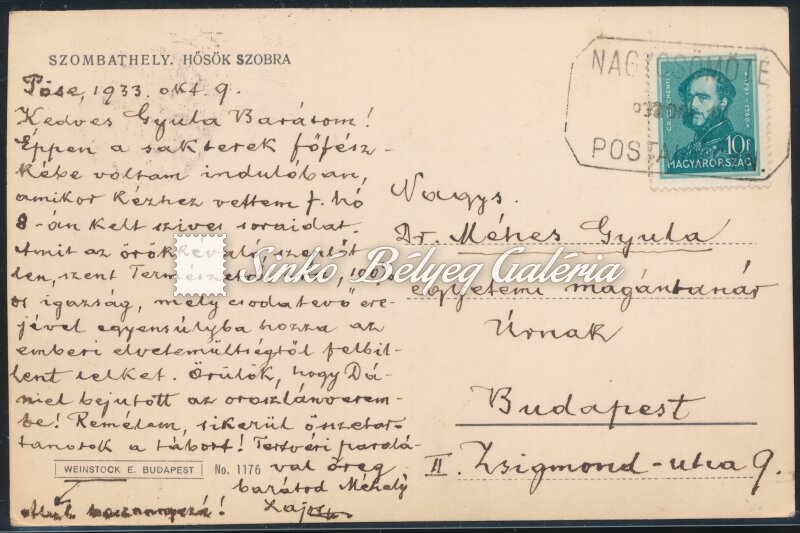 SZOMBATHELY. HŐSÖK SZOBRA
Pöse, 1933. okt. 9.
Kedves Gyula Barátom!
Éppen a sakterek főfész-
kébe voltam indulóban,
amikor kézhez vettem f. hó
8-án kelt szives soraidat.
Amit az örökkévaló
szent 100%
os igazság, mely csodatevő ere-
jével egyensúlyba hozza az
emberi elvetemültségtől felbil-
lent lelket. Örülök, hogy Dá-
niel bejutott az oroszlánverem-
be! Remélem, sikerül összetar-
tanotok a tábort! Testvéri parolá-
val öreg
barátod Mehály
Lajos
WEINSTOCK E. BUDAPEST
No. 1176
NAGYCSÖMÖTE
POSTAI
GR. SZÉCHENYI I.
1791-1860
10f
MAGYARORSZÁG
Nagys.
Dr. Méhes Gyula
egyetemi magántanár
Úrnak
Budapest
II. Zsigmond-utca 9.
Sinkó Bélyeg Galéria